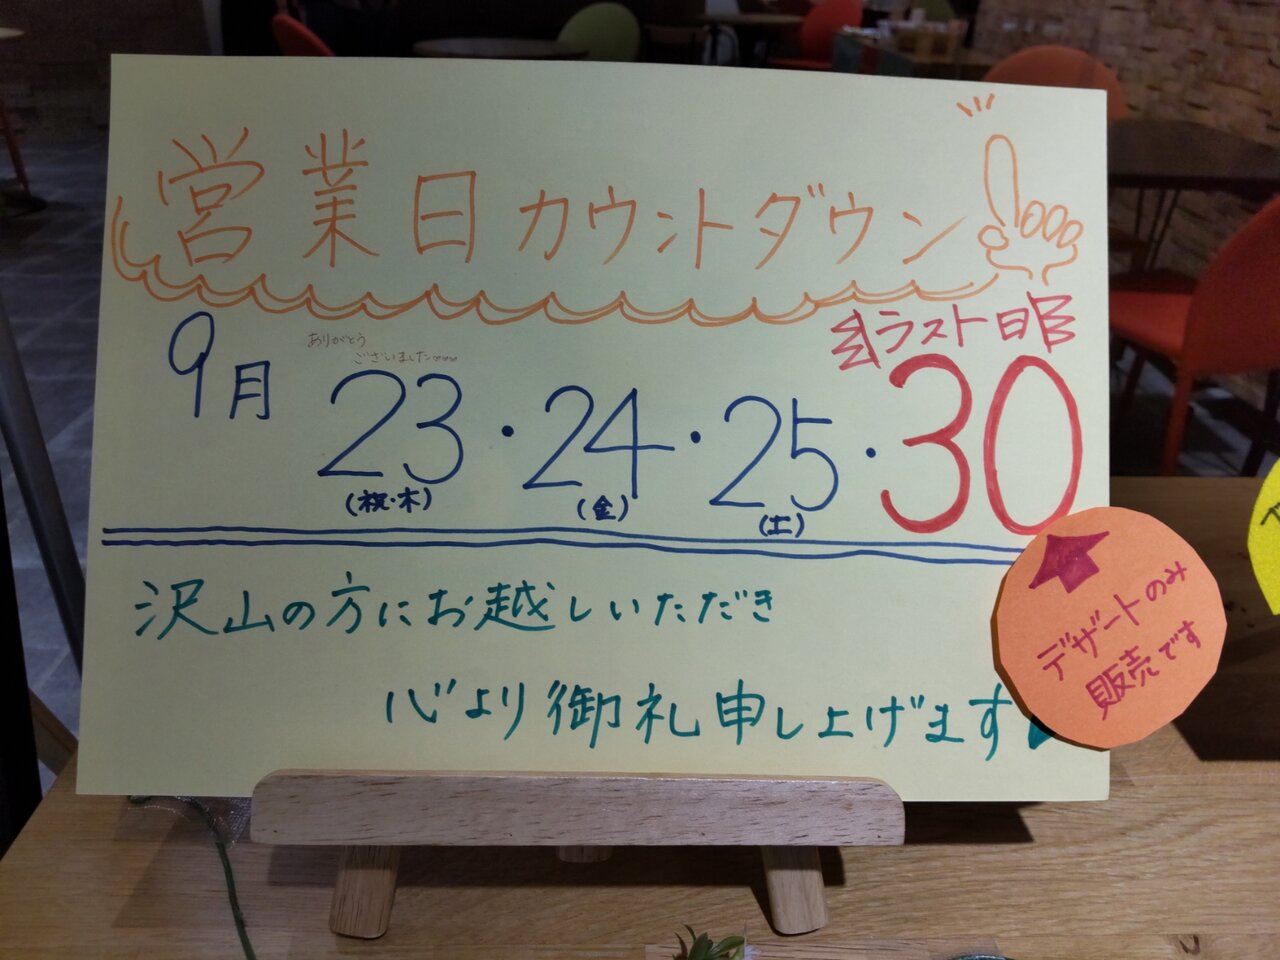 営業日カウントダウン
ラスト日
ありがとう
ございました
9月 23・24・25・30
(祝・木) (金) (土)
デザートのみ
販売です
沢山の方にお越しいただき
心より御礼申し上げます